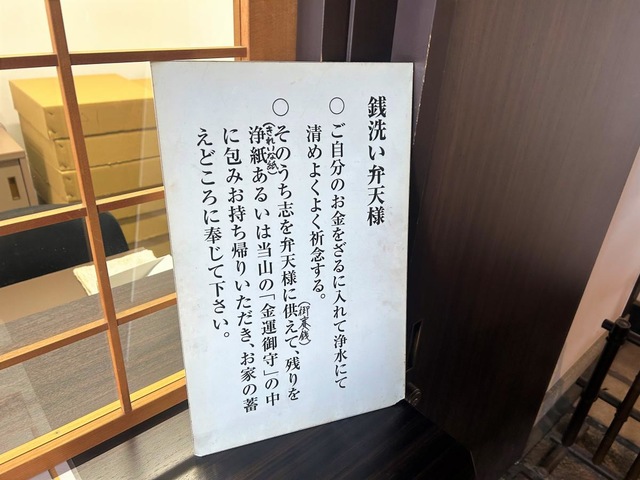 銭洗い弁天様
○ご自分のお金をざるに入れて浄水にて
清めよくよく祈念する。
○そのうち志を弁天様に供えて、残りを
(御賽銭)
浄紙あるいは当山の「金運御守」の中
(きれいな紙)
に包みお持ち帰りいただき、お家の蓄
えどころに奉じて下さい。